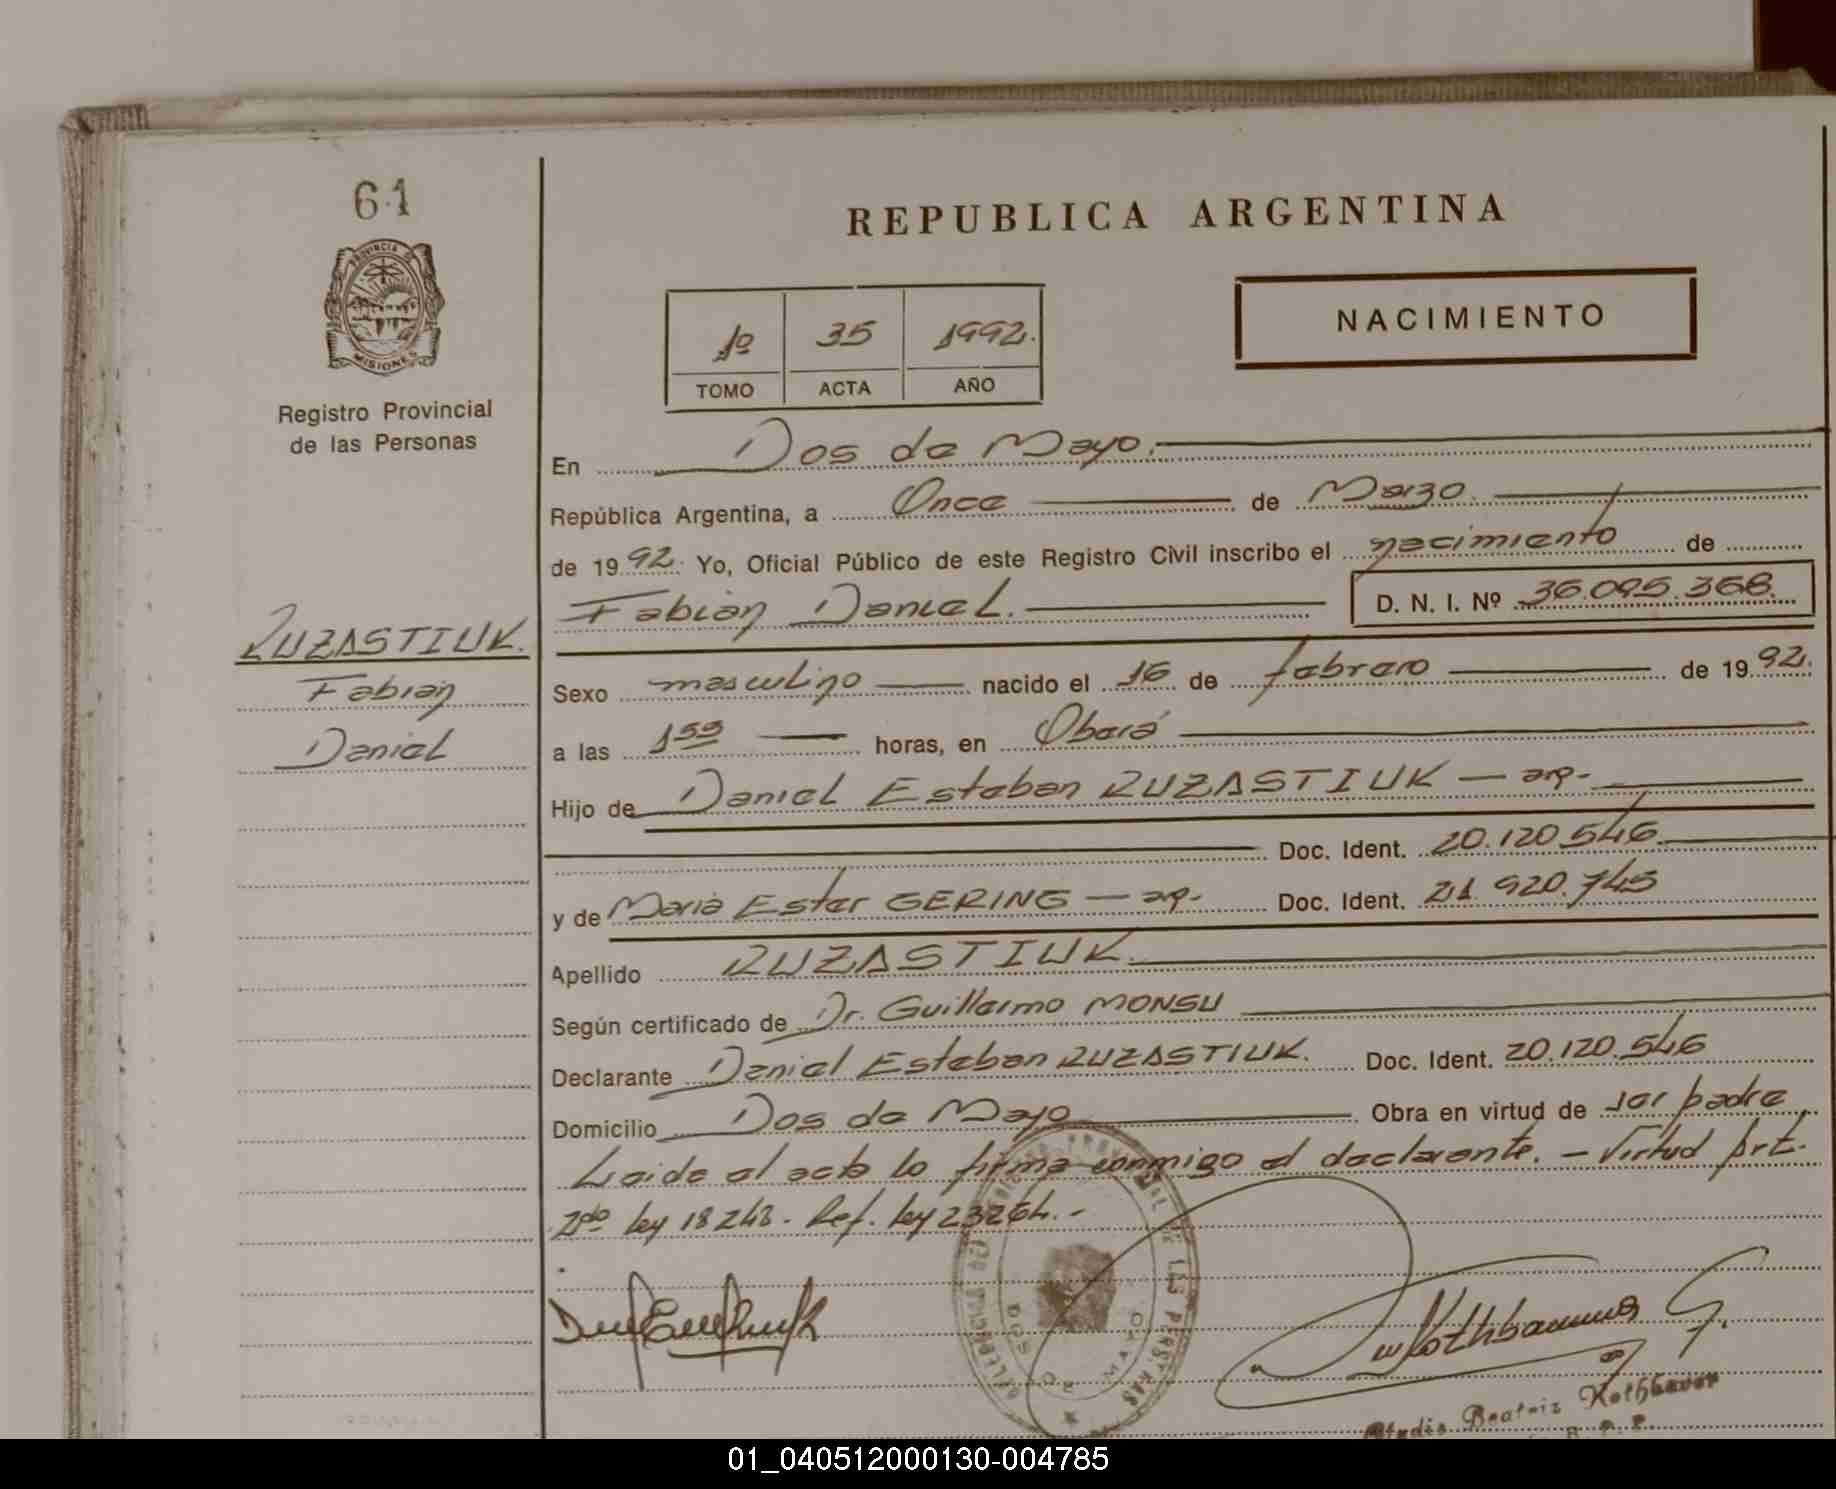 61
PROVINCIA DE
MISIONES
Registro Provincial
de las Personas
RUZASTIUK.
Fabian
Daniel
REPUBLICA ARGENTINA
1º 35 1992.
TOMO ACTA AÑO
NACIMIENTO
En Dos de Mayo.
República Argentina, a Once de Marzo.
de 1992. Yo, Oficial Público de este Registro Civil inscribo el nacimiento de
Fabian Daniel. D. N. I. Nº 36.095.368.
Sexo masculino nacido el 16 de febrero de 1992.
a las 1 horas, en Oberá
Hijo de Daniel Esteban RUZASTIUK — arg.
Doc. Ident. 20.120.546.
y de Maria Ester GERING — arg. Doc. Ident. 21.920.745
Apellido RUZASTIUK.
Según certificado de Dr. Guillermo MONSU
Declarante Daniel Esteban RUZASTIUK. Doc. Ident. 20.120.546
Domicilio Dos de Mayo Obra en virtud de ser padre
Leida el acta lo firma conmigo el declarante. — Virtud Art.
2do ley 18248. Ref. ley 23264. -
DOS DE MAYO
Beatriz Rothbauer
01_040512000130-004785